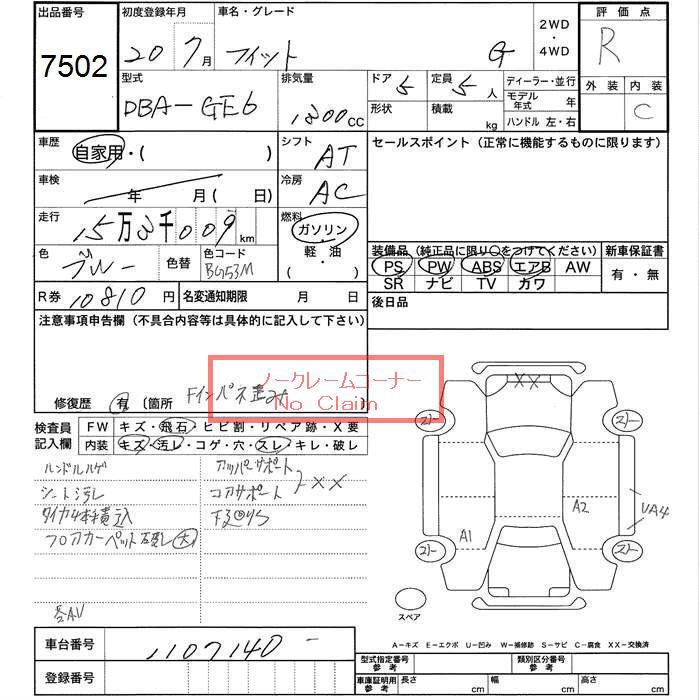 出品番号 初度登録年月 車名・グレード 2WD ・ 4WD 評価点
7502 20 7月 フィット G R
型式 排気量 ドア 5 定員 5人 ディーラー・並行 外装 内装
DBA-GE6 1300cc 形状 積載 kg モデル年式 年 C
ハンドル 左・右
車歴 自家用・( ) シフト AT セールスポイント (正常に機能するものに限ります)
車検 年 月(日) 冷房 AC
走行 15万 千009km 燃料 ガソリン・軽油・( )
色 ブルー 色替 色コード BG53M
装備品(純正品に限り○をつけてください) 新車保証書
PS PW ABS エアB AW 有・無
SR ナビ TV カワ
R券 10810円 名変通知期限 月 日 後日品
注意事項申告欄(不具合内容等は具体的に記入して下さい)
ノークレームコーナー
No Claim
修復歴 有 〔箇所 Fインパネ歪み 〕
XX
検査員記入欄 FW キズ・飛石・ヒビ割・リペア跡・X要
内装 キズ・汚レ・コゲ・穴・スレ・キレ・破レ
ハンドルハゲ アッパーサポート
シート汚レ コアサポート XX
タイヤ4本積込
フロアカーペット 大
A1 A2 UA4
スペア
A-キズ E-エクボ U-凹み W-補修跡 S-サビ C-腐食 XX-交換済
車台番号 1107140
登録番号
型式指定番号 参考 類別区分番号 参考
車庫証明用 参考 長さ cm 幅 cm 高さ cm